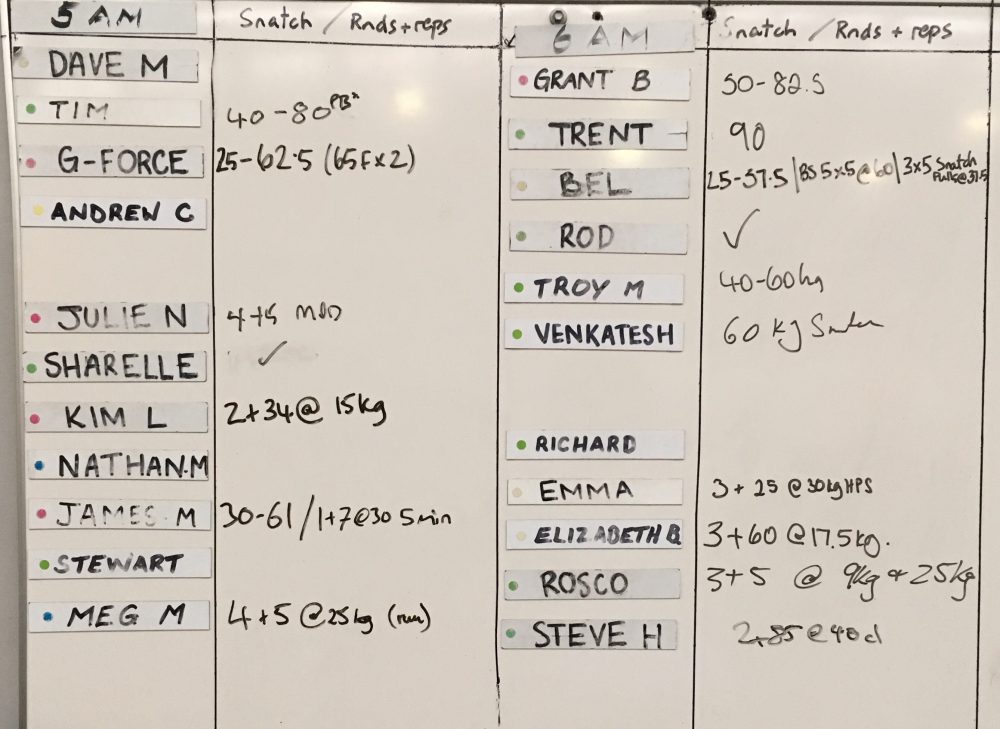 5 AM Snatch / Rnds + reps
DAVE M
TIM 40-80 PB*
G-FORCE 25-62.5 (65F x 2)
ANDREW C
JULIE N 4+5
SHARELLE ✓
KIM L 2+34 @ 15kg
NATHAN.M
JAMES M 30-61 / 1+7 @ 30 5min
STEWART
MEG M 4+5 @ 25kg (run)
6 AM Snatch / Rnds + reps
GRANT B 50-82.5
TRENT 90
BEL 25-37.5 | BS 5x5 @ 60 | 3x5 Snatch
Pulls @ 37.5
ROD ✓
TROY M 40-60kg
VENKATESH 60 kg
RICHARD
EMMA 3+25 @ 30kg HPS
ELIZABETH B 3+60 @ 17.5kg.
ROSCO 3+5 @ 9kg + 25kg
STEVE H 2+85 @ 40